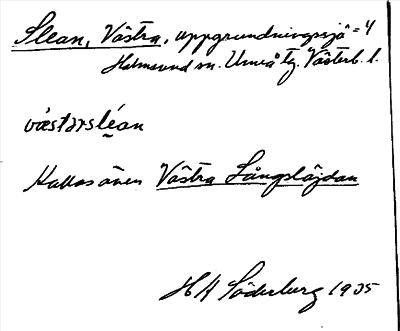 Slean, Västra, uppgrundningssjö = 4
Holmsund sn. Umeå tg. Västerb. l.
västərsléan
Kallas även Västra Långslåjdan
H A Söderberg 1935